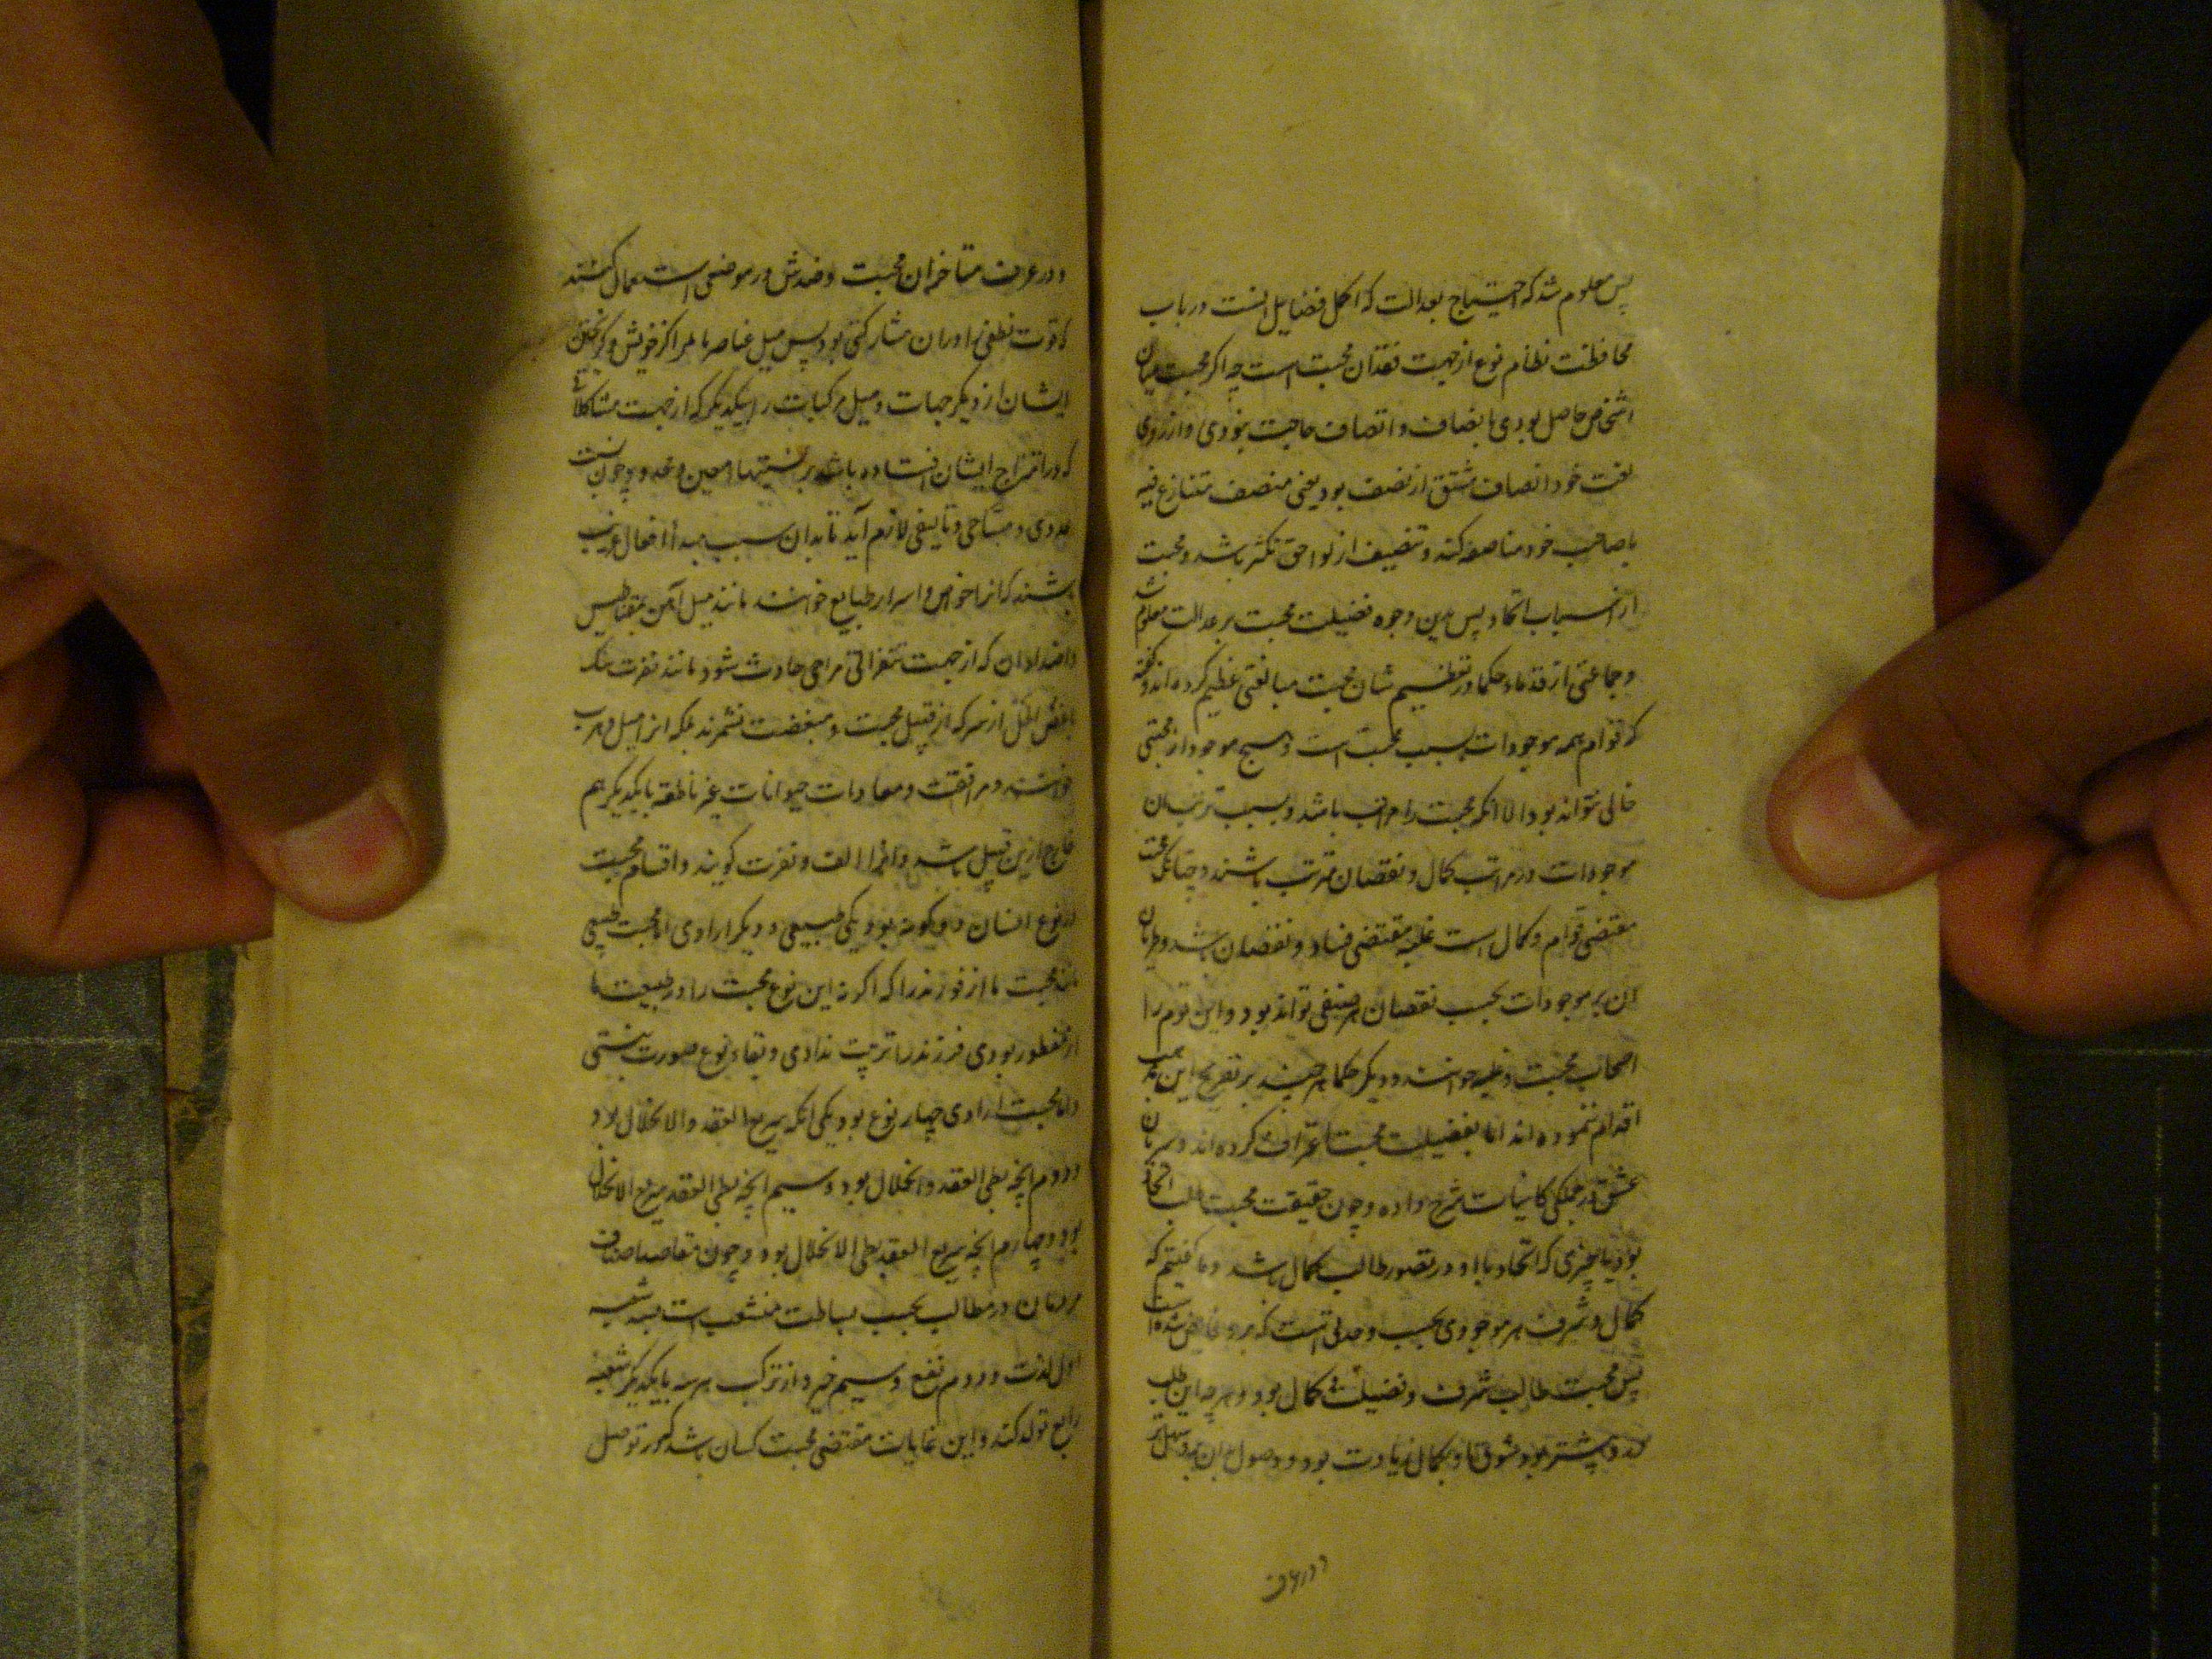 پس معلوم شد که احتیاج بعدالت که اکمل فضایل انست در باب
محافظت نظام نوع از جهت فقدان محبت است چه اکر محبت میان
اشخاص حاصل بودی بانصاف و انتصاف حاجت نبودی و از روی
لغت خود انصاف مشتق از نصف بود یعنی منصف متنازع فیه
با صاحب خود مناصفه کند و تنصیف از لواحق تکثر باشد و محبت
از اسباب اتحاد پس بدین وجوه فضیلت محبت بر عدالت معلوم شد
و جماعتی از قدماء حکما در تعظیم شان محبت مبالغتی عظیم کرده اند و گفته
که قوام همه موجودات بسبب محبت است و هیچ موجود از محبتی
خالی نتواند بود الا انکه محبت را مراتب باشد و بسبب ترتب ان
موجودات در مراتب کمال و نقصان مترتب باشند و چنانکه محبت
مقتضی قوام و کمال است غلبه مقتضی فساد و نقصان باشد و طریان
آن بر موجودات بحسب نقصان هر صنفی تواند بود و این قوم را
اصحاب محبت و غلبه خوانند و دیگر حکما هر چند بر تصریح این مذهب
اقدام ننموده اند اما بفضیلت محبت اعتراف کرده اند و سریان
عشق در جملکی کاینات شرح داده و چون حقیقت محبت طلب اتحاد
بود با چیزی که اتحاد با او در تصور طالب کمال باشد و ما کفتیم که
کمال و شرف هر موجودی بحسب وحدتی است که برو فایض شده است
پس محبت طالب شرف و فضیلت و کمال بود و هر چه این طلب
درو بیشتر بود شوق او بکمال زیادت بود و وصول بدان برو سهل تر
و در عرف
و در عرف متاخران محبت و ضدش در موضعی استعمال کنند
که قوت نطقی را در ان مشارکتی بود پس میل عناصر را بمراکز خویش و گریختن
ایشان از دیگر جهات و میل مرکبات را بیکدیگر که از جهت مشاکلاتی
که در امتزاج ایشان افتاده باشد بر نسبتهاء معین و محدود چون نسبت
عددی و مساحی و تالیفی لازم آید تا بدان سبب مبدأ افعال غریب
باشند که انرا خواص و اسرار طبایع خوانند مانند میل آهن بمقناطیس
و اضداد ان که از جهت تنفراتی مزاجی حادث شود مانند نفرت سنک
باغض الخل از سرکه از قبیل محبت و مبغضت نشمرند بلکه انرا میل و هرب
خوانند و موافقت و معادات حیوانات غیر ناطقه با یکدیگر هم
خارج ازین قبیل باشد و انرا الف و نفرت کویند و اقسام محبت
در نوع انسان دو کونه بود یکی طبیعی و دیکر ارادی اما محبت طبیعی
مانند محبت مادر فرزند را که اگر نه این نوع محبت را در طبیعت مادر
مفطور بودی فرزند را تربیت ندادی و بقاء نوع صورت نبستی
و اما محبت ارادی چهار نوع بود یکی انکه سریع العقد و الانحلال بود
و دوم انچه بطی العقد و انحلال بود و سیم انچه بطی العقد سریع الانحلال
بود و چهارم انچه سریع العقد بطی الانحلال بود و چون مقاصد اصناف
مردمان در مطالب بحسب بساطت منشعب است بسه شعبه
اول لذت و دوم نفع و سیم خیر و از ترکب هر سه با یکدیگر شعبه
رابع تولد کند و این غایات مقتضی محبت کسان باشد که در توصل